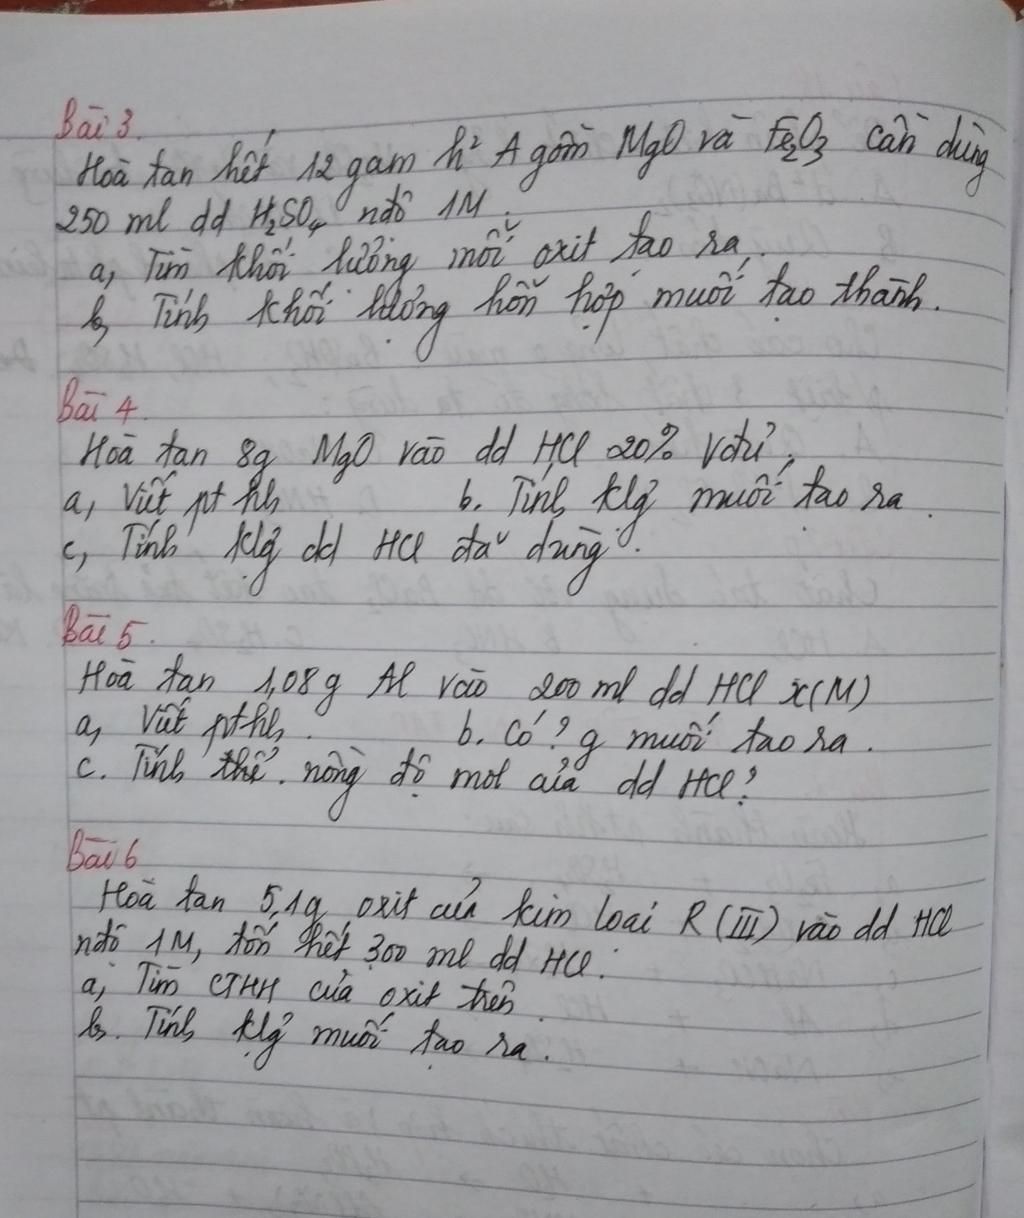 Bài 3.
Hoà tan hết 12 gam h² A gồm MgO và Fe₂O₃ cần dùng
250 ml dd H₂SO₄ nđộ 1M.
a, Tìm khối lượng mỗi oxit tạo ra.
b, Tính khối lượng hỗn hợp muối tạo thành.
Bài 4.
Hoà tan 8g MgO vào dd HCl 20% vđủ.
a, Viết pthh b. Tính klg muối tạo ra.
c, Tính klg dd HCl đã dùng.
Bài 5.
Hoà tan 1,08g Al vào 200 ml dd HCl x(M)
a, Viết pthh. b. Có ? g muối tạo ra.
c. Tính thể. nồng độ mol của dd HCl?
Bài 6
Hoà tan 5,1g oxit của kim loại R (III) vào dd HCl
nđộ 1M, tốn hết 300 ml dd HCl.
a, Tìm CTHH của oxit trên.
b. Tính klg muối tạo ra.